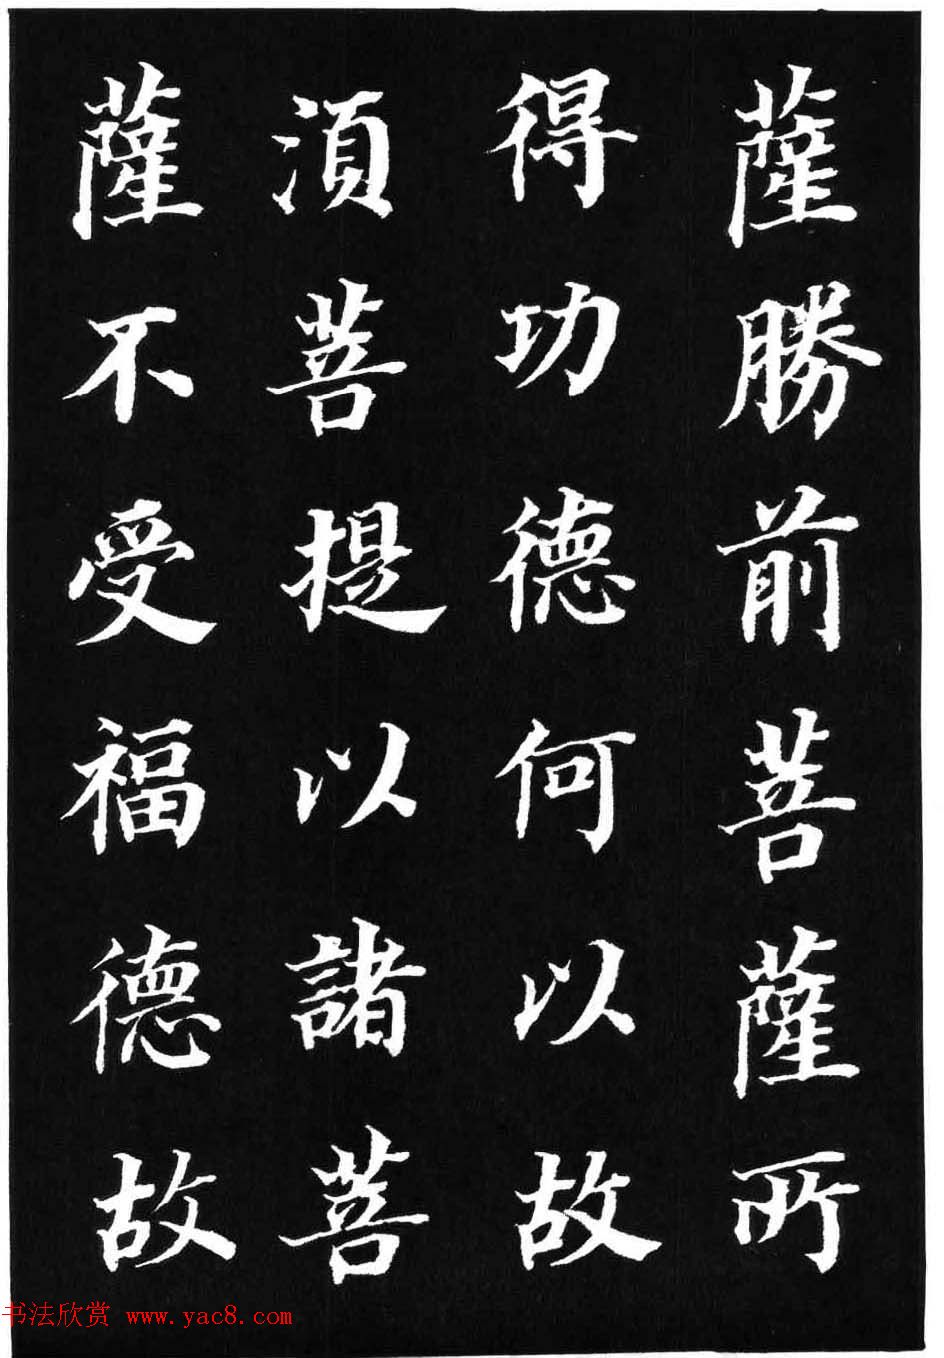 薩勝前菩薩所
得功德何以故
湏菩提以諸菩
薩不受福德故
书法欣赏 www.yac8.com